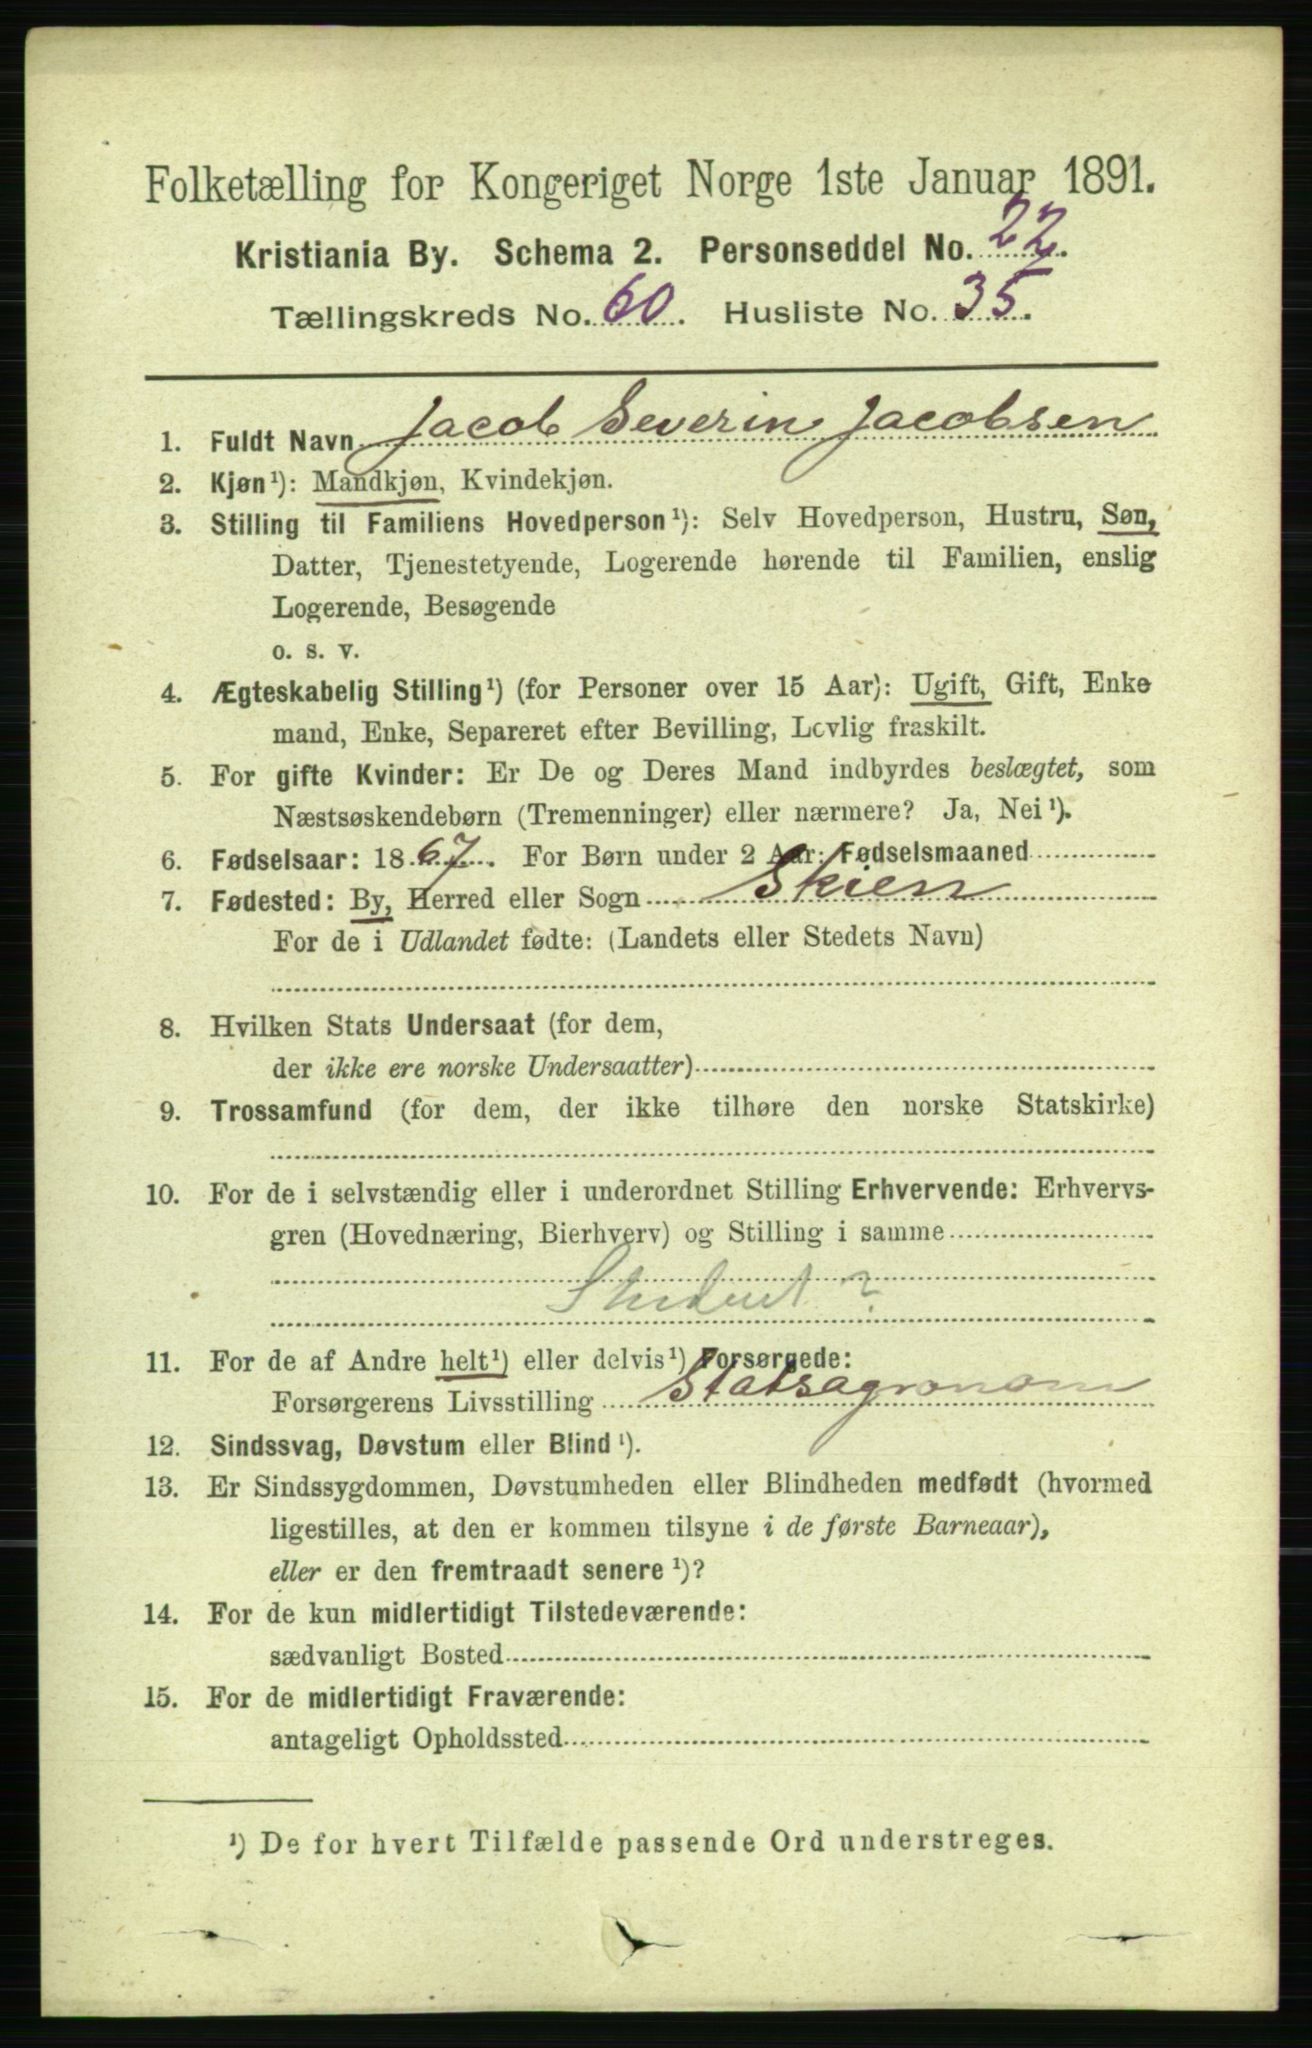 Folketælling for Kongeriget Norge 1ste Januar 1891.
Kristiania By. Schema 2. Personseddel No. 22.
Tællingskreds No. 60. Husliste No. 35.
1. Fuldt Navn Jacob Severin Jacobsen
2. Kjøn¹): Mandkjøn, Kvindekjøn.
3. Stilling til Familiens Hovedperson¹): Selv Hovedperson, Hustru, Søn,
Datter, Tjenestetyende, Logerende hørende til Familien, enslig
Logerende, Besøgende
o. s. v.
4. Ægteskabelig Stilling¹) (for Personer over 15 Aar): Ugift, Gift, Enke
mand, Enke, Separeret efter Bevilling, Lovlig fraskilt.
5. For gifte Kvinder: Er De og Deres Mand indbyrdes beslægtet, som
Næstsøskendebørn (Tremenninger) eller nærmere? Ja, Nei¹).
6. Fødselsaar: 1867. For Børn under 2 Aar: Fødselsmaaned
7. Fødested: By, Herred eller Sogn Skien
For de i Udlandet fødte: (Landets eller Stedets Navn)
8. Hvilken Stats Undersaat (for dem,
der ikke ere norske Undersaatter)
9. Trossamfund (for dem, der ikke tilhøre den norske Statskirke)
10. For de i selvstændig eller i underordnet Stilling Erhvervende: Erhvervs-
gren (Hovednæring, Bierhverv) og Stilling i samme
Student?
11. For de af Andre helt¹) eller delvis¹) Forsørgede:
Forsørgerens Livsstilling Statsagronom
12. Sindssvag, Døvstum eller Blind¹).
13. Er Sindssygdommen, Døvstumheden eller Blindheden medfødt (hvormed
ligestilles, at den er kommen tilsyne i de første Barneaar),
eller er den fremtraadt senere¹)?
14. For de kun midlertidigt Tilstedeværende:
sædvanligt Bosted
15. For de midlertidigt Fraværende:
antageligt Opholdssted
¹) De for hvert Tilfælde passende Ord understreges.